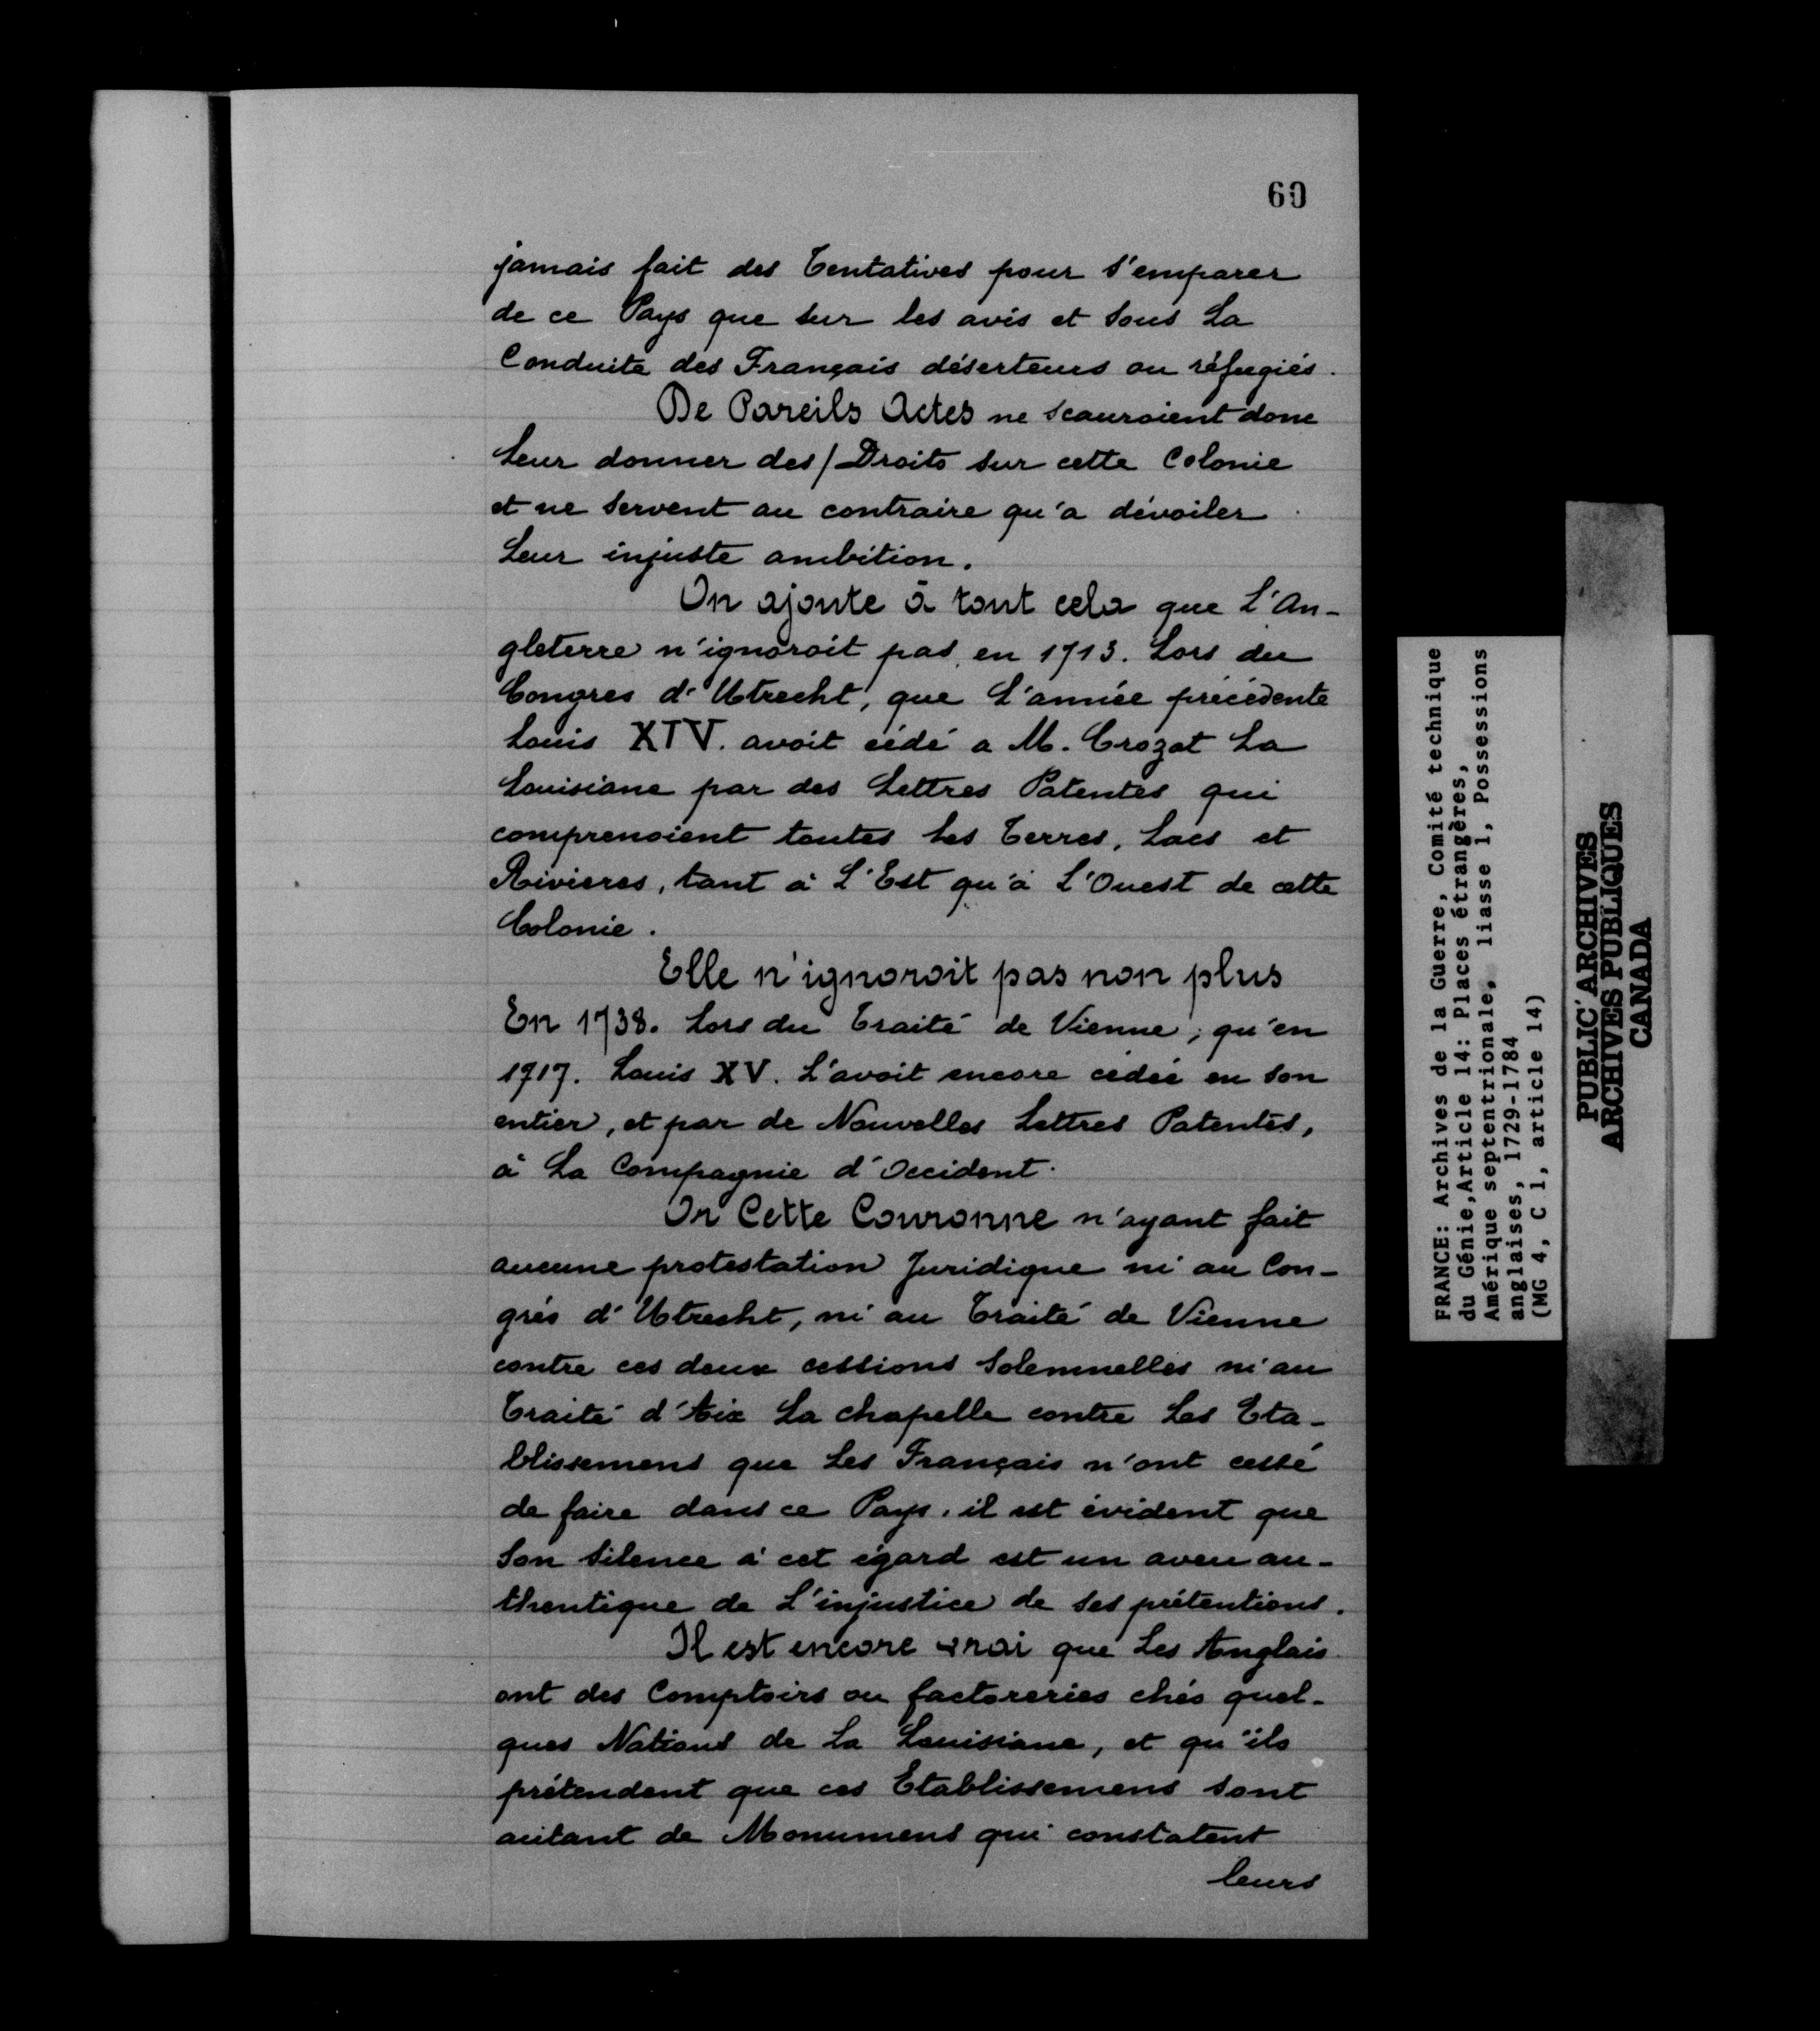 60
jamais fait des Tentatives pour s'emparer
de ce Pays que sur les avis et sous La
Conduite des Français déserteurs ou réfugiés.
De Pareils Actes ne scauroient donc
Leur donner des / Droits sur cette Colonie
et ne servent au contraire qu'a dévoiler
Leur injuste ambition.
On ajoute à tout cela que L'An-
gleterre n'ignoroit pas en 1713. Lors du
Congres d'Utrecht, que L'année précédente
Louis XIV. avoit cédé a M. Crozat La
Louisiane par des Lettres Patentes qui
comprenoient toutes Les Terres, Lacs et
Rivieres, tant à L'Est qu'à L'Ouest de cette
Colonie.
Elle n'ignoroit pas non plus
En 1738. Lors du Traité de Vienne, qu'en
1717. Louis XV. L'avoit encore cédée en son
entier, et par de Nouvelles Lettres Patentes,
à La Compagnie d'Occident.
Or Cette Couronne n'ayant fait
aucune protestation Juridique ni au Con-
grés d'Utrecht, ni au Traité de Vienne
contre ces deux cessions Solemnelles ni au
Traité d'Aix La chapelle contre Les Eta-
blissemens que Les Français n'ont cessé
de faire dans ce Pays, il est évident que
Son Silence à cet égard est un aveu au-
thentique de L'injustice de ses prétentions.
Il est encore vrai que Les Anglais
ont des Comptoirs ou factoreries chés quel-
ques Nations de La Louisiane, et qu'ils
prétendent que ces Etablissemens sont
autant de Monumens qui constatent
leurs
FRANCE: Archives de la Guerre, Comité technique
du Génie,Article 14: Places étrangères,
Amérique septentrionale, liasse 1, Possessions
anglaises, 1729-1784
(MG 4, C 1, article 14)
PUBLIC ARCHIVES
ARCHIVES PUBLIQUES
CANADA